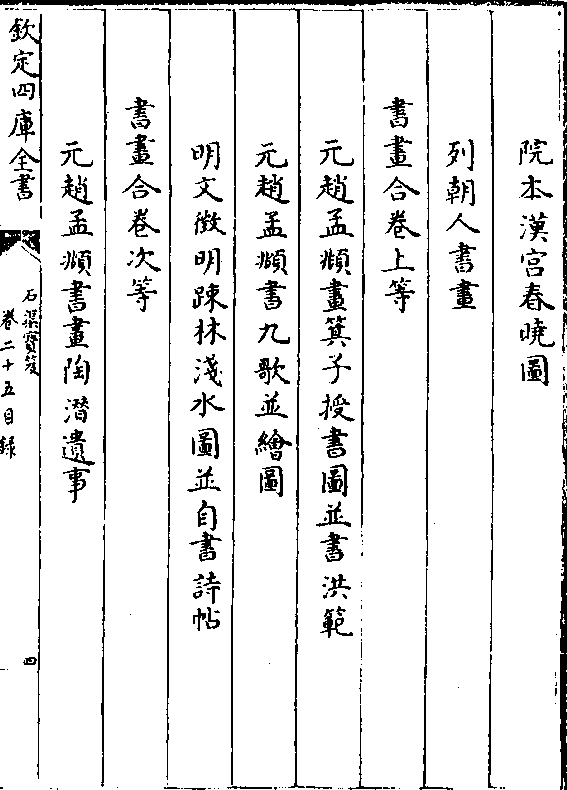 院本漢宫春曉圖
列朝人書畫
書畫合卷上等
元趙孟頫畫箕子授書圖並書洪範
元趙孟頫書九歌並繪圖
明文徴明踈林淺水圖並自書詩帖
書畫合卷次等
元趙孟頫書畫陶潜遺事
欽定四庫全書
石渠寶笈
卷二十五目録
四